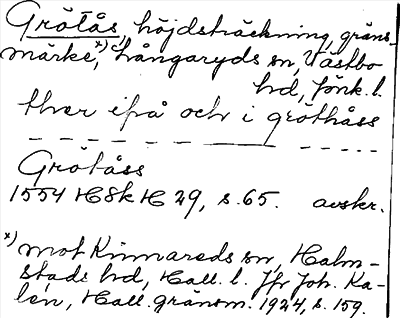 Grötås, höjdsträckning, gräns-
märke,ˣ⁾ Långaryds sn, Västbo
hd, Jönk. l.
ther ifrå och i gröthåss
Grötåss
1554 HSk H 29, s. 65. avskr.
ˣ⁾ mot Kinnareds sn, Halm-
stads hd, Hall. l. Jfr Joh. Ka-
lén, Hall. gränsm. 1924, s. 159.